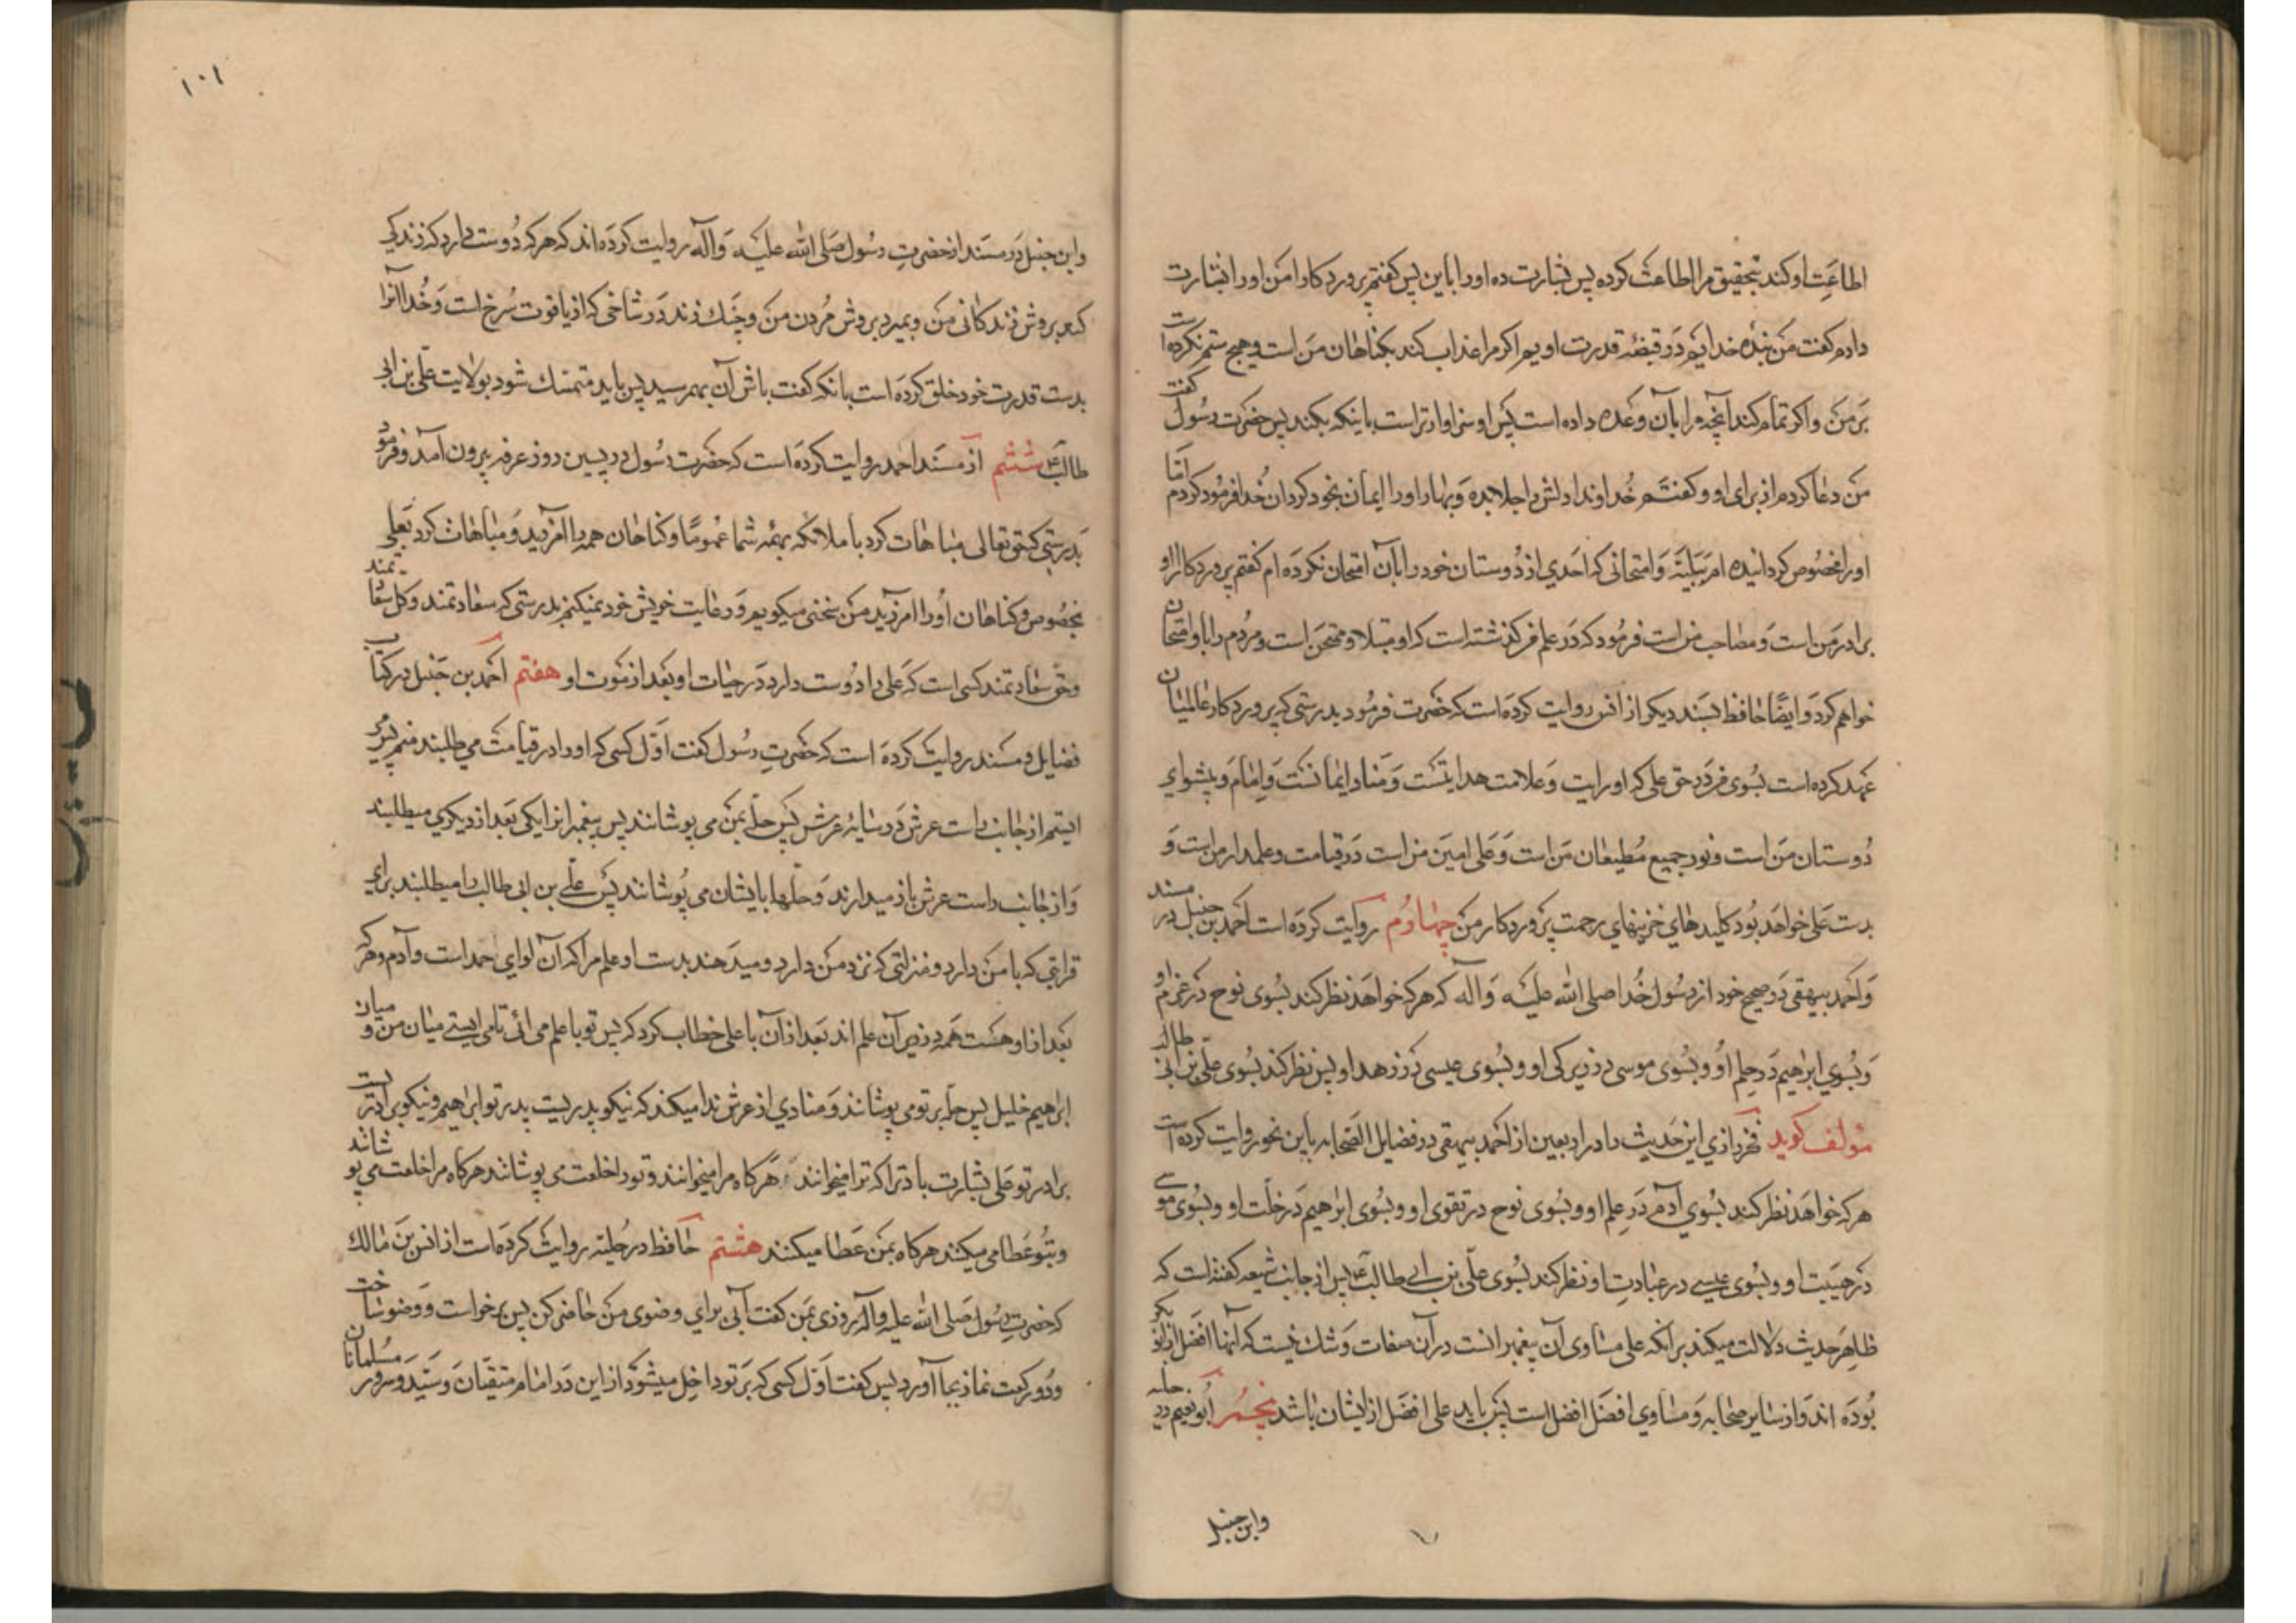 اطاعت او کند بتحقیق مرا اطاعت کرده پس بشارت ده او را باین پس گفتم پروردگارا من او را بشارت
دادم گفت من بنده خدایم و در قبضه قدرت اویم اکر مرا عذاب کند بکناهان من است و هیچ ستم نکرده است
بر من و اکر تمام کند آنچه مرا بآن وعده داده است پس او سزاوارتر است باینکه بکند پس حضرت رسول گفت
من دعا کردم از برای او و کفتم خداوندا دلش را جلا بده و بهار او را ایمان بخود کردان خدا فرمود کردم اما
او را مخصوص کردانیده ام ببلیه و امتحانی که احدی از دوستان خود را بآن امتحان نکرده ام کفتم پروردکارا او
برادر من است و مصاحب من است فرمود که در علم من گذشته است که او مبتلا و ممتحن است و مردم را باو امتحان
خواهم کرد و ایضا حافظ بسند دیکر از انس روایت کرده است که حضرت فرمود بدرستی که پروردکار عالمیان
عهد کرده است بسوی من در حق علی که او رایت و علامت هدایتست و منار ایمانست و امام و پیشوای
دوستان من است و نور جمیع مطیعان من است و علی امین من است در قیامت و علمدار من است و
بدست علی خواهد بود کلیدهای خزینهای رحمت پروردکار من چهارم روایت کرده است احمد بن حنبل در مسند
و احمد بیهقی در صحیح خود از رسول خدا صلی الله علیه و آله که هر که خواهد نظر کند بسوی نوح در عزم او
و بسوی ابراهیم در حلم او و بسوی موسی در زیرکی او و بسوی عیسی در زهد او پس نظر کند بسوی علی بن ابی طالب
مؤلف کوید فخر رازی این حدیث را در اربعین از احمد بیهقی در فضایل الصحابه باین نحو روایت کرده است
هر که خواهد نظر کند بسوی آدم در علم او و بسوی نوح در تقوی او و بسوی ابراهیم در خلت او و بسوی موسی
در هیبت او و بسوی عیسی در عبادت او نظر کند بسوی علی بن ابی طالب ع پس از جانب شیعه کفته است که
ظاهر حدیث دلالت میکند بر آنکه علی مساوی آن پیغمبرانست در آن صفات و شک نیست که آنها افضل از ابو بکر
بوده اند و از سایر صحابه و مساوی افضل افضل است پس باید علی افضل از ایشان باشد پنجم ابو نعیم در حلیه
وابن حنبل
۱۰۱
وابن حنبل در مسند از حضرت رسول صلی الله علیه و آله روایت کرده اند که هر که دوست دارد که زندکی
کند بروش زندکانی من و بمیرد بروش مردن من و چنک زند در شاخی که از یاقوت سرخ است و خدا آنرا
بدست قدرت خود خلق کرده است بانکه کفت باش آن بهم رسید پس باید متمسک شود بولایت علی بن ابی
طالب ع ششم از مسند احمد روایت کرده است که حضرت رسول در پسین روز عرفه بیرون آمد و فرمود
بدرستی که حق تعالی مباهات کرد با ملائکه بهمه شما عموما و کناهان همه را آمرزید و مباهات کرد بعلی
بخصوص و کناهان او را آمرزید من سخنی میکویم و رعایت خویش خود نمیکنم بدرستی که سعادتمند و کل سعادتمند
و حق سعادتمند کسی است که علی را دوست دارد در حیات او و بعد از موت او هفتم احمد بن حنبل در کتاب
فضایل و مسند روایت کرده است که حضرت رسول کفت اول کسی که او را در قیامت می طلبند منم پس می
ایستم از جانب راست عرش در سایه عرش پس حله بمن می پوشانند پس پیغمبرانرا یکی بعد از دیکری میطلبند
و از جانب راست عرش باز میدارند و حلها بایشان می پوشانند پس علی بن ابی طالب را میطلبند برای
قرابتی که با من دارد و منزلتی که نزد من دارد و میدهند بدست او علم مرا که آن لوای حمد است و آدم و هر که
بعد از او هست همه در زیر آن علم اند بعد از آن با علی خطاب کرد که پس تو با علم می ائی تا می ایستی میان من و میان
ابراهیم خلیل پس حله بر تو می پوشانند و منادی از عرش ندا میکند که نیکو پدریست پدر تو ابراهیم و نیکو برادریست
برادر تو علی بشارت باد ترا که ترا میخوانند هرکاه مرا میخوانند و تو را خلعت می پوشانند هرکاه مرا خلعت می پوشانند
و بتو عطا می میکنند هرکاه بمن عطا میکنند هشتم حافظ در حلیه روایت کرده است از انس بن مالک
که حضرت رسول صلی الله علیه و آله روزی بمن کفت آبی برای وضوی من حاضر کن پس برخواست و وضو ساخت
و دو رکعت نماز بجا آورد پس کفت اول کسی که بر تو داخل میشود از این در امام متقیان و سید و سرور مسلمانان